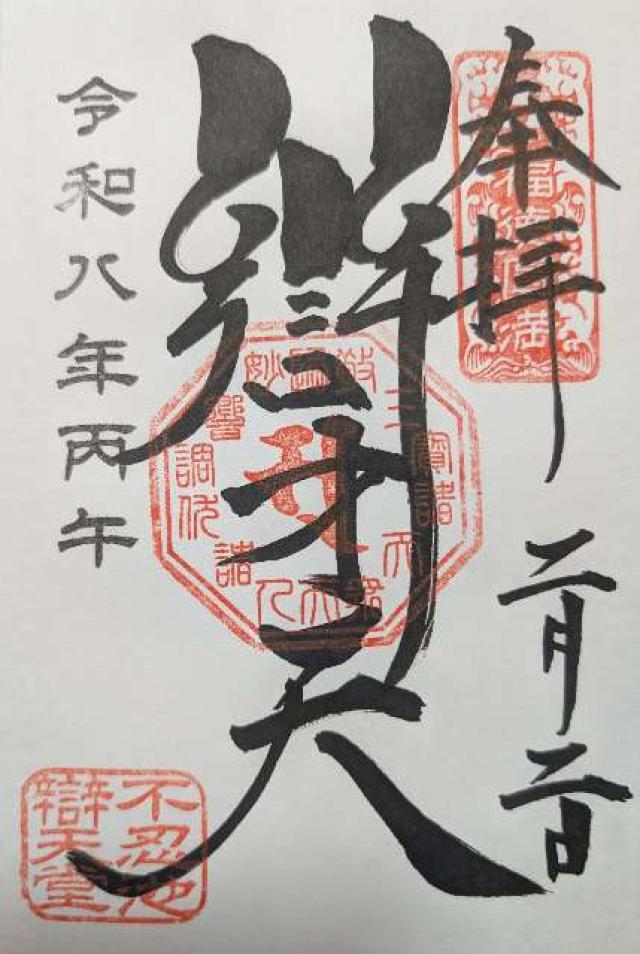 奉拝
福德円満
二月二日
辯才天
令和八年丙午
不忍池
辯天堂